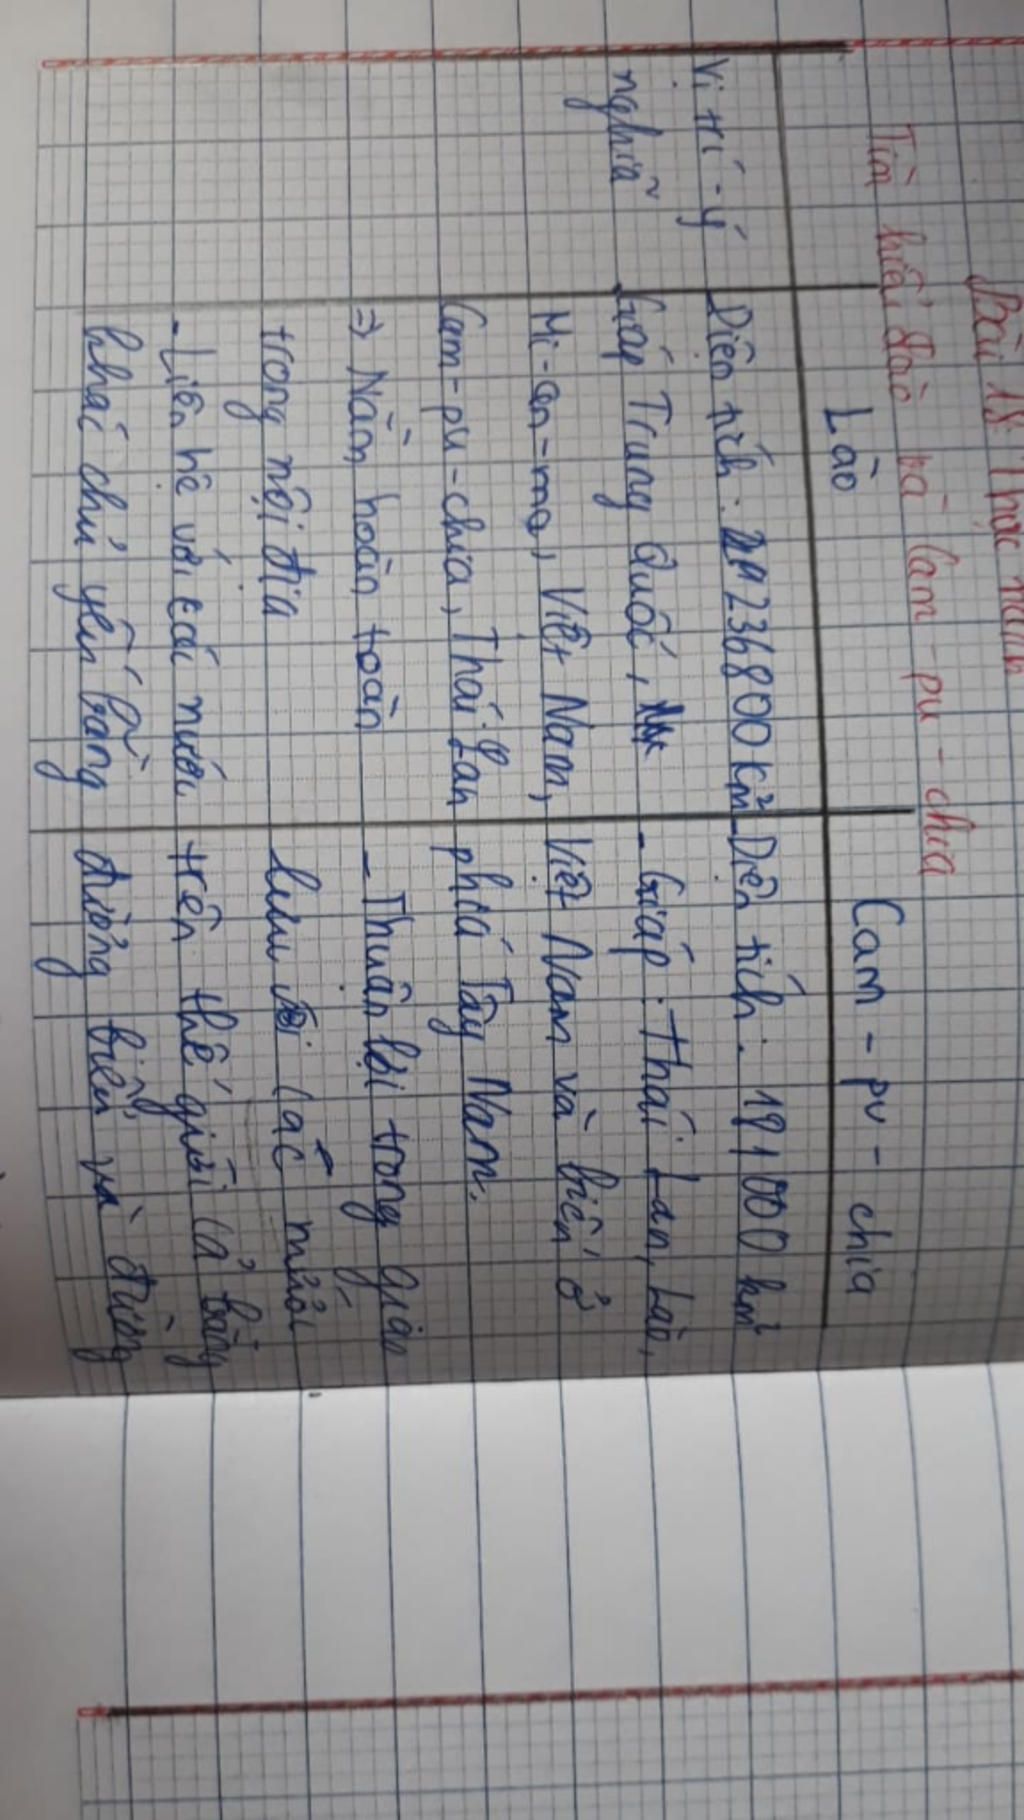 Bài 18: Thực hành
Tìm hiểu Lào và Cam-pu-chia
Lào Cam-pu-chia
Vị trí-ý Diện tích: 236800 km² -Diện tích: 181000 km²
nghĩa Giáp Trung Quốc, - Giáp: Thái Lan, Lào,
Mi-an-ma, Việt Nam, Việt Nam và biển ở
Cam-pu-chia, Thái Lan phía Tây Nam.
=> Nằm hoàn toàn - Thuận lợi trong giao
trong nội địa lưu với các nước
- Liên hệ với các nước trên thế giới cả bằng
khác chủ yếu bằng đường biển và đường